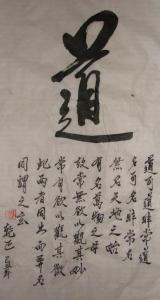 道
道可道非常道
名可名非常名
無名天地之始
有名萬物之母
故常無欲以觀其妙
常有欲以觀其徼
此兩者同出而異名
同謂之玄